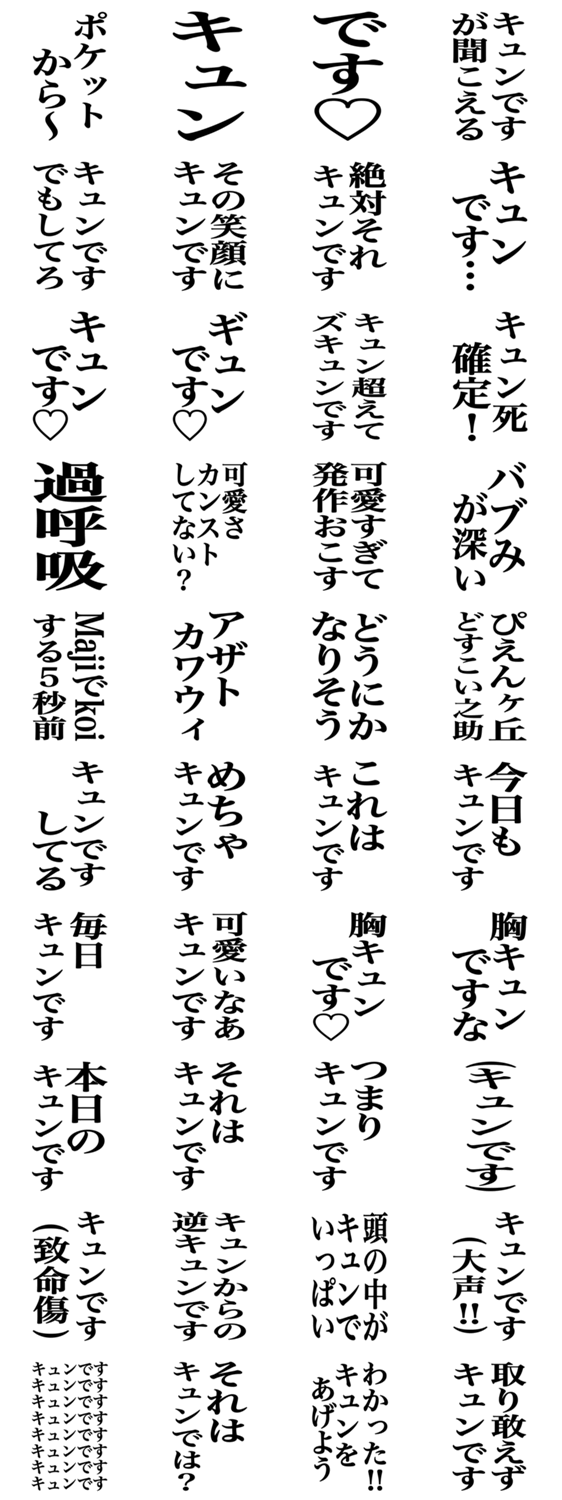 ポケット
から～
キュン
です♡
キュンです
が聞こえる
キュンです
でもしてろ
その笑顔に
キュンです
絶対それ
キュンです
キュン
です…
キュン
です♡
ギュン
です♡
キュン超えて
ズキュンです
キュン死
確定！
過呼吸
可愛さ
カンスト
してない？
可愛すぎて
発作おこす
バブみ
が深い
Majiでkoi
する5秒前
アザト
カワウィ
どうにか
なりそう
ぴえんヶ丘
どすこい之助
キュンです
してる
めちゃ
キュンです
これは
キュンです
今日も
キュンです
毎日
キュンです
可愛いなあ
キュンです
胸キュン
です♡
胸キュン
ですな
本日の
キュンです
それは
キュンです
つまり
キュンです
(キュンです)
キュンです
(致命傷)
キュンからの
逆キュンです
頭の中が
キュンで
いっぱい
キュンです
(大声!!)
キュンです
キュンです
キュンです
キュンです
キュンです
キュンです
キュンです
キュンです
それは
キュンでは？
わかった!!
キュンを
あげよう
取り敢えず
キュンです